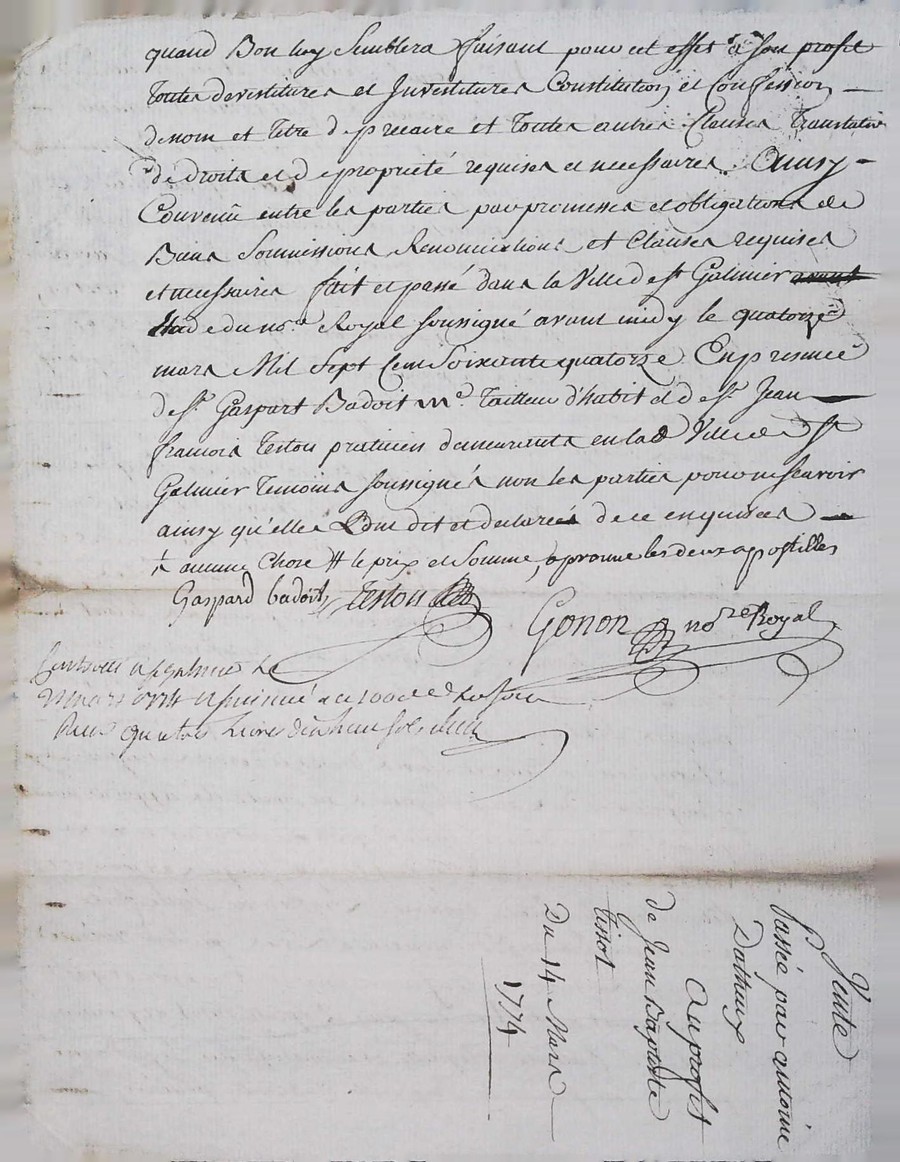 quand Bon luy Semblera faisant pour cet effet à Son profit
toutes devestitures et Investitures Constitution et Confession
de nom et titre de precaire et toutes autres Clauses Translative
de droits et de proprieté requises et necessaires. Ainsy
Convenu entre les parties par promesses et obligations de
Biens Soumissions Renonciations et Clauses requises
et necessaires fait et passé dans la Ville de st Galmier
Etude du nore Royal soussigné avant midy le quatorze
mars Mil Sept Cent Soixante quatorze En presence
de sr Gaspart Badoit md Tailleur d'habit et de sr Jean
francois Teston praticien demeurants en lad Ville de st
Galmier Temoins soussignés non les parties pour ne scavoir
ainsy qu'elles Ont dit et declarées de ce enquises
aucune Chose # le prix et Somme, aprouve les deux apostilles
Gaspard badoit Teston
Gonon nore Royal
mars 1774
Reçu quatre Livres
Vente
Passée par antoine
Dathuy
Au profit
de Jean Baptiste
Tissot
Du 14 Mars
1774